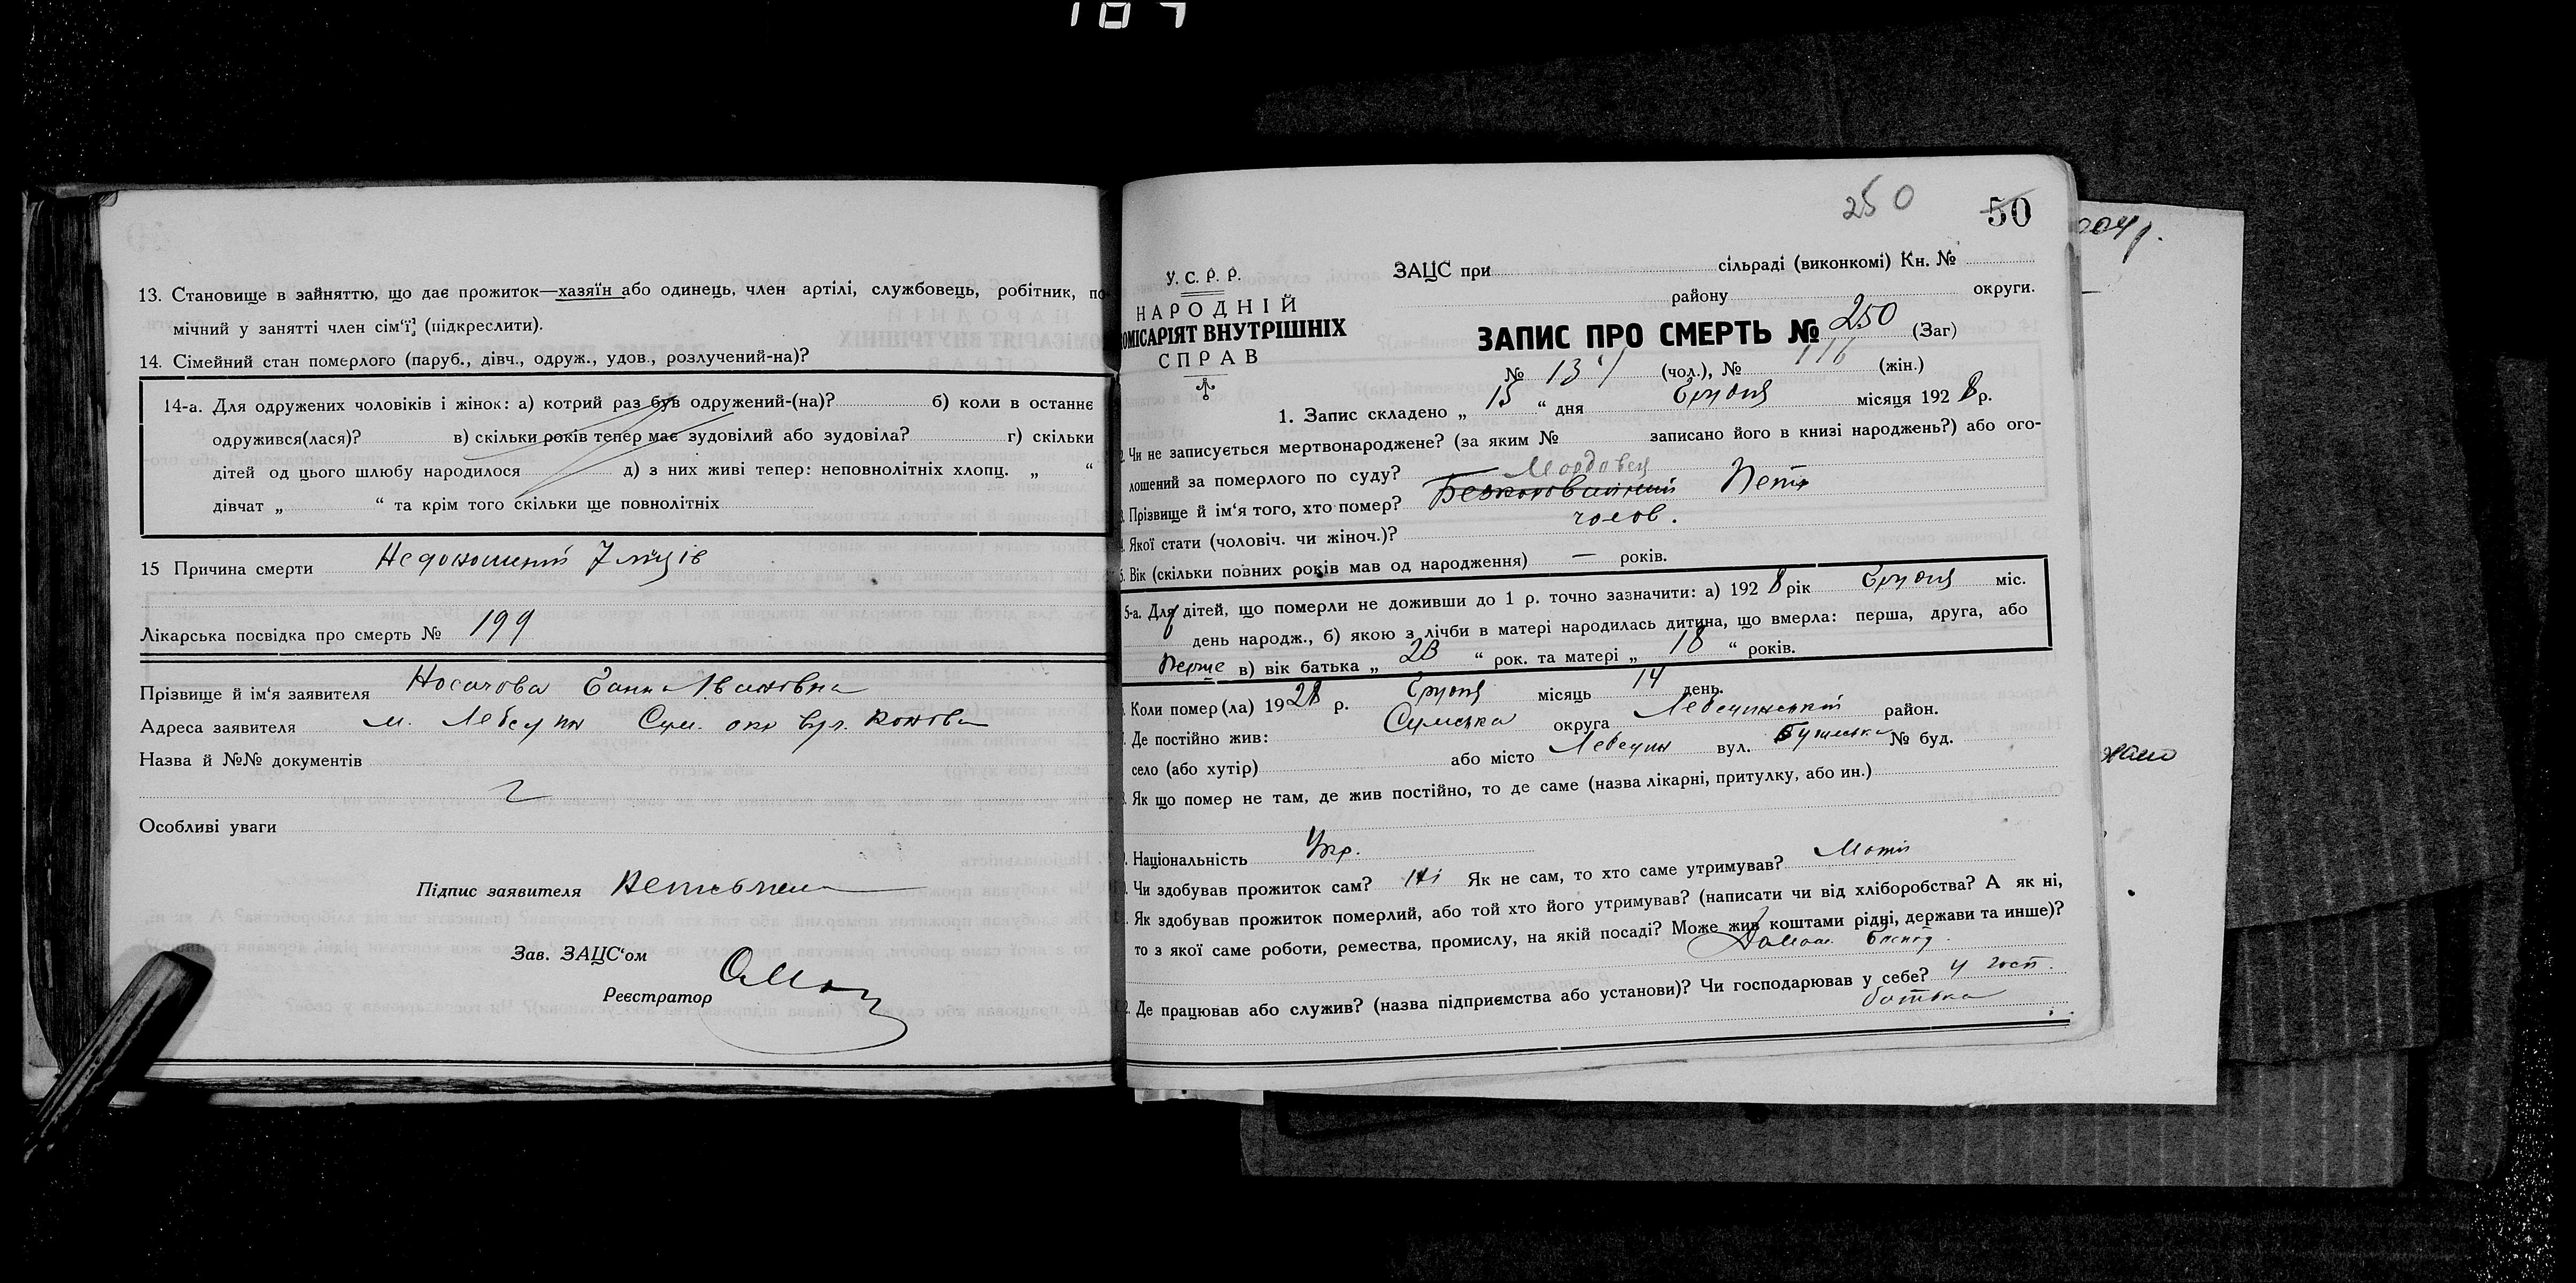 13. Становище в зайняттю, що дає прожиток—хазяїн або одинець, член артілі, службовець, робітник, по-
мічний у занятті член сім'ї, (підкреслити).
14. Сімейний стан померлого (паруб., дівч., одруж., удов., розлучений-на)?
14-а. Для одружених чоловіків і жінок: а) котрий раз був одружений-(на)? б) коли в останнє
одружився(лася)? в) скільки років тепер має зудовілий або зудовіла? г) скільки
дітей од цього шлюбу народилося д) з них живі тепер: неповнолітніх хлопц. „ “
дівчат „ “ та крім того скільки ще повнолітніх
15 Причина смерти Недоношений 7 міців
Лікарська посвідка про смерть № 199
Прізвище й ім'я заявителя Носачова Ганна Івановна
Адреса заявителя м. Лебедин Сум. окр вул.
Назва й №№ документів
Особливі уваги
Підпис заявителя
Зав. ЗАЦС'ом
Реєстратор
250
50
У. С. Р. Р.
НАРОДНІЙ
ОМІСАРІЯТ ВНУТРІШНІХ
СПРАВ
ЗАЦС при сільраді (виконкомі) Кн. №
району округи.
ЗАПИС ПРО СМЕРТЬ № 250 (Заг)
№ 134 (чол.), № 116 (жін.)
1. Запис складено „ 15 “ дня Грудня місяця 1928 р.
2. Чи не записується мертвонароджене? (за яким № записано його в книзі народжень?) або ого-
лошений за померлого по суду?
3. Прізвище й ім'я того, хто помер? Петр
4. Якої стати (чоловіч. чи жіноч.)? чолов.
5. Вік (скільки повних років мав од народження) — років.
5-а. Для дітей, що померли не доживши до 1 р. точно зазначити: а) 1928 рік Грудня міс.
день народж., б) якою з лічби в матері народилась дитина, що вмерла: перша, друга, або
перше в) вік батька „ 23 “ рок. та матері „ 18 “ років.
Коли помер(ла) 1928 р. Грудня місяць 14 день.
Де постійно жив: Сумська округа Лебединський район.
село (або хутір) або місто Лебедин вул. № буд.
Як що помер не там, де жив постійно, то де саме (назва лікарні, притулку, або ин.)
Національність Укр.
Чи здобував прожиток сам? Ні Як не сам, то хто саме утримував? Мати
Як здобував прожиток померлий, або той хто його утримував? (написати чи від хліборобства? А як ні,
то з якої саме роботи, ремества, промислу, на якій посаді? Може жив коштами рідні, держави та инше)?
Домаш. Господ.
2. Де працював або служив? (назва підприємства або установи)? Чи господарював у себе? у госп.
батька